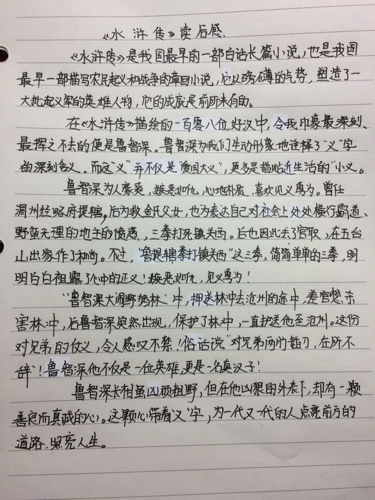 《水浒传》读后感
《水浒传》是我国最早的一部白话长篇小说,也是我国
最早一部描写农民起义和战争的章回小说,它以磅礴的气势,塑造了一
大批起义军的英雄人物,它的成就是前所未有的。
在《水浒传》描绘的一百零八位好汉中,令我印象最深刻、
最挥之不去的便是鲁智深。鲁智深为我们生动形象地诠释了“义”字
的深刻含义。而这“义”并不仅是“爱国大义”,更多是指贴近生活的“小义。
鲁智深为人豪爽,嫉恶如仇,心地朴质,喜欢见义勇为。曾任
渭州经略府提辖,后为救金氏父女,也为表达自己对社会上处处横行霸道、
野蛮无理的地主的愤慨,三拳打死镇关西。后也因此丢了官职,在五台
山出家作了和尚。不过,“鲁提辖拳打镇关西”这三拳,简简单单的三拳,明
明白白袒露了心中的正义!嫉恶如仇,见义勇为!
“鲁智深大闹野猪林”中,押送林冲去沧州的途中,差官想杀
害林冲,后鲁智深突然出现,保护了林冲,一直护送他至沧州。这份
对兄弟的仗义,令人感叹不禁!俗话说“对兄弟两肋插刀,在所不
辞”!鲁智深他不仅是一位英雄,更是一名真汉子!
鲁智深长相虽凶顽粗野,但在他凶狠的外表下,却有一颗
善良而真诚的心。这颗心带着“义”字,为一代又一代的人点亮前方的
道路,照亮人生。